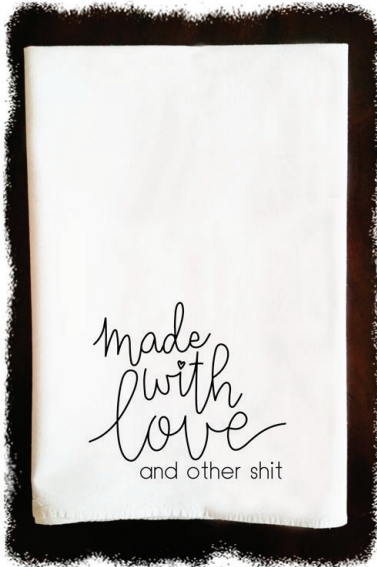 made
with
love
and other shit